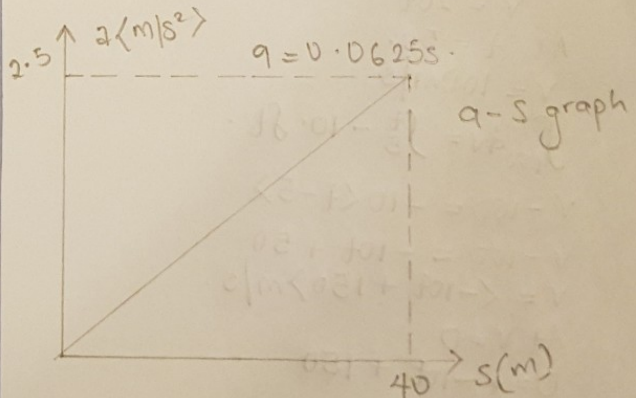 a<m/s²>
2.5
a = 0.0625s.
a-s graph
40
s(m)